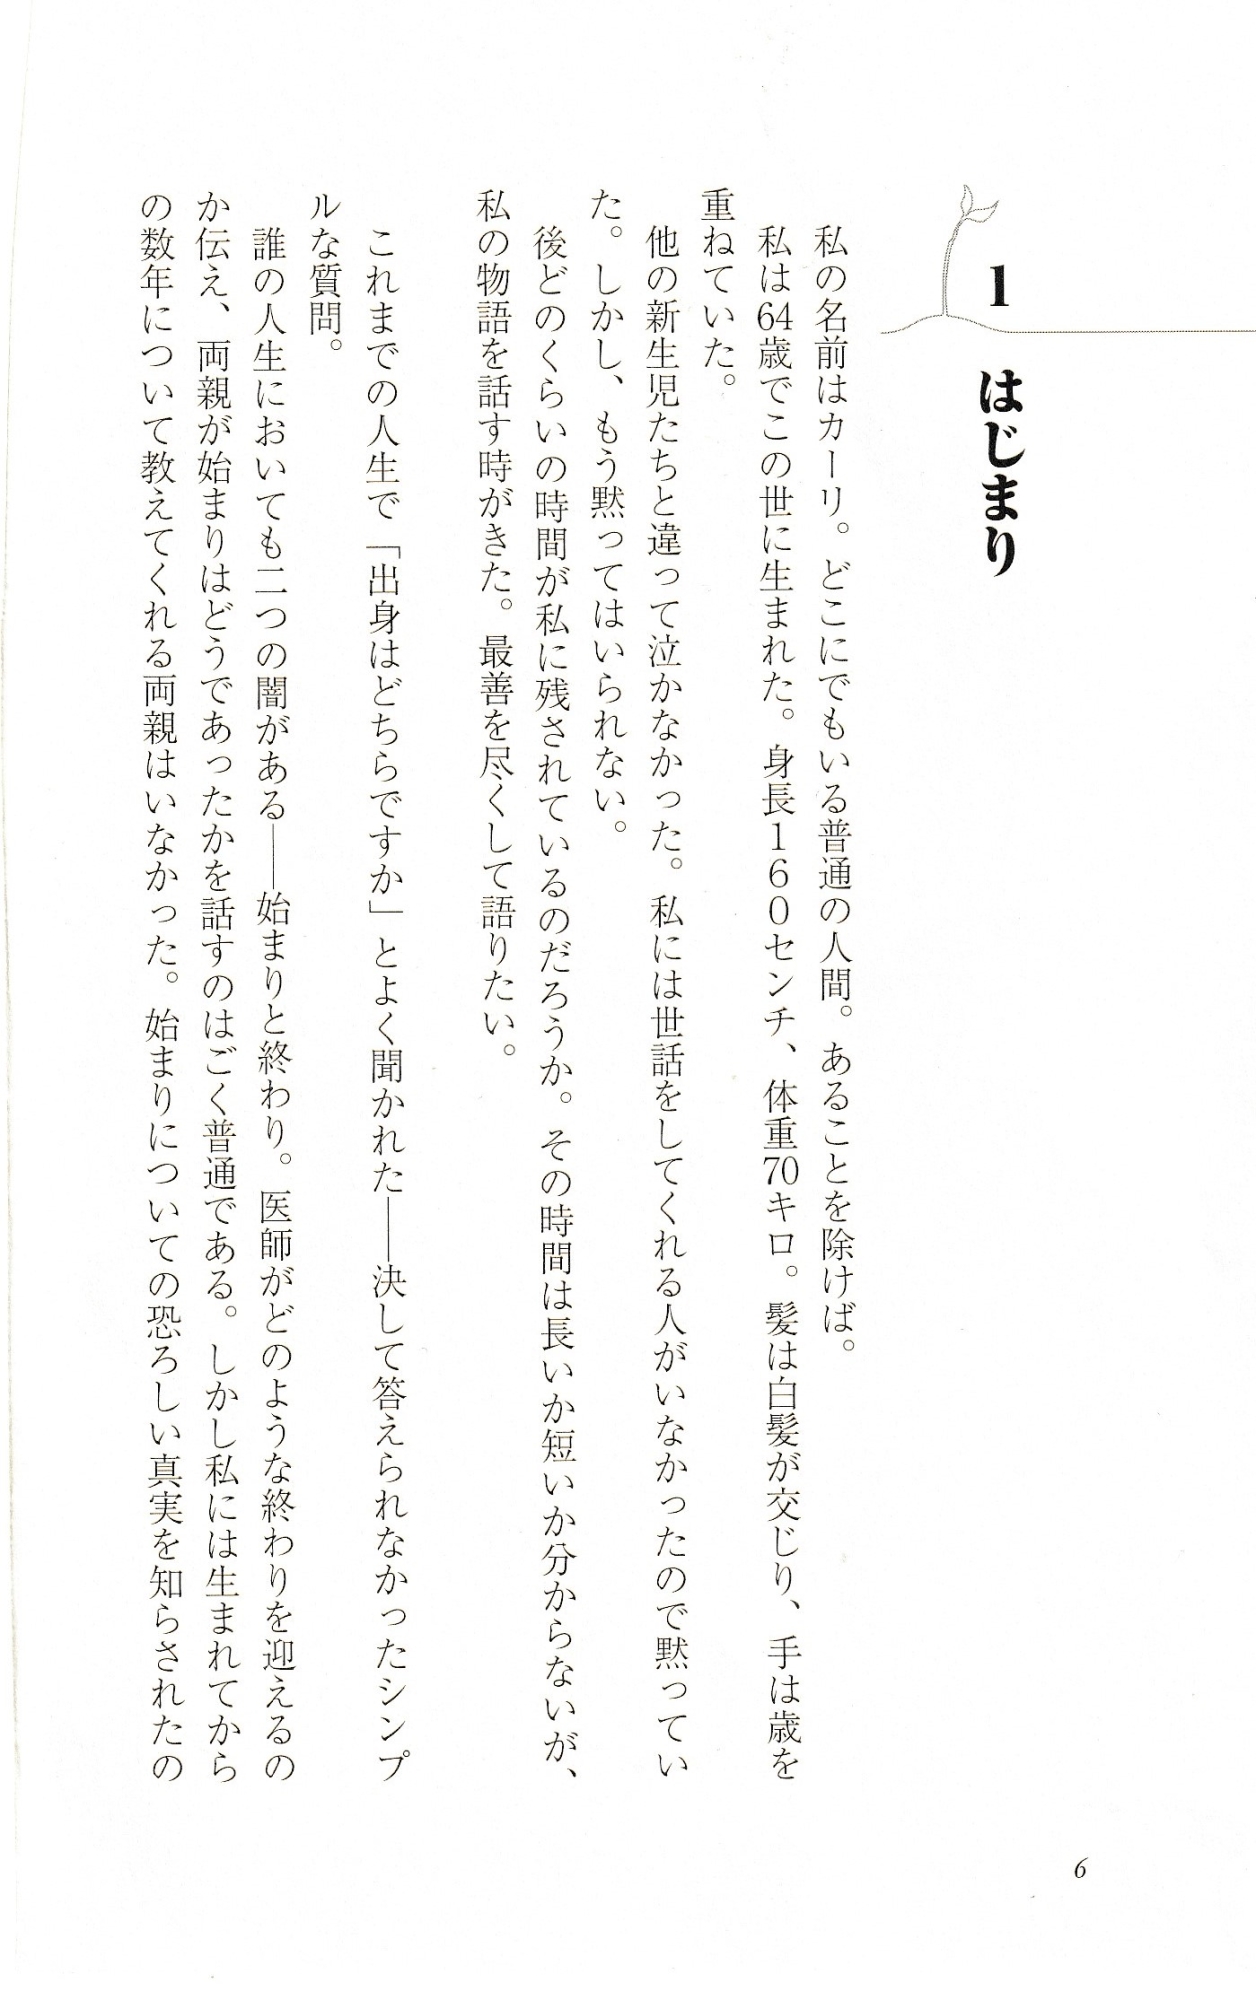 1 はじまり
私の名前はカーリ。どこにでもいる普通の人間。あることを除けば。
私は64歳でこの世に生まれた。身長160センチ、体重70キロ。髪は白髪が交じり、手は歳を
重ねていた。
他の新生児たちと違って泣かなかった。私には世話をしてくれる人がいなかったので黙ってい
た。しかし、もう黙ってはいられない。
後どのくらいの時間が私に残されているのだろうか。その時間は長いか短いか分からないが、
私の物語を話す時がきた。最善を尽くして語りたい。
これまでの人生で「出身はどちらですか」とよく聞かれた――決して答えられなかったシンプ
ルな質問。
誰の人生においても二つの闇がある――始まりと終わり。医師がどのような終わりを迎えるの
か伝え、両親が始まりはどうであったかを話すのはごく普通である。しかし私には生まれてから
の数年について教えてくれる両親はいなかった。始まりについての恐ろしい真実を知らされたの
6